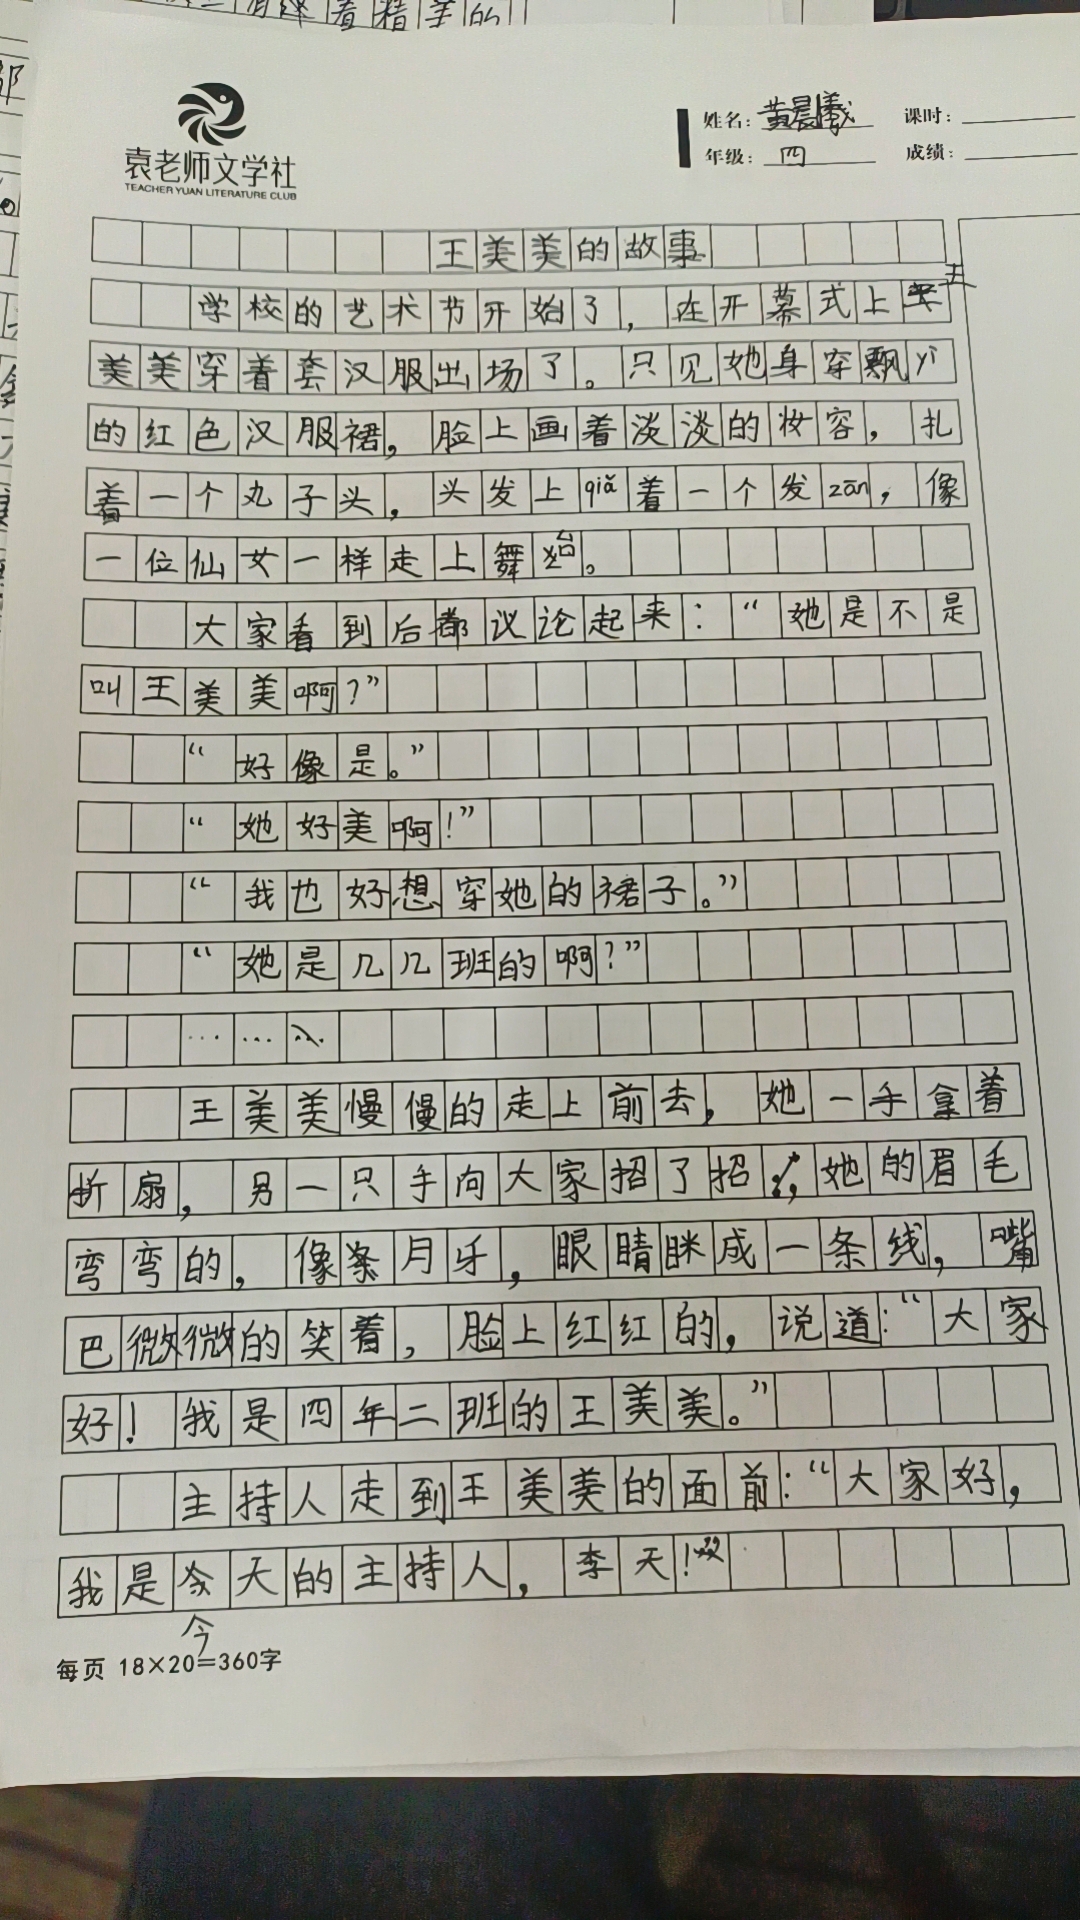 着精美的
袁老师文学社
TEACHER YUAN LITERATURE CLUB
姓名：黄晨曦 课时：
年级：四 成绩：
王美美的故事
学校的艺术节开始了，在开幕式上王
美美穿着套汉服出场了。只见她身穿飘yì
的红色汉服裙，脸上画着淡淡的妆容，扎
着一个丸子头，头发上qiǎ着一个发zān，像
一位仙女一样走上舞台。
大家看到后都议论起来：“她是不是
叫王美美啊？”
“好像是。”
“她好美啊！”
“我也好想穿她的裙子。”
“她是几几班的啊？”
……
王美美慢慢的走上前去，她一手拿着
折扇，另一只手向大家招了招，她的眉毛
弯弯的，像条月牙，眼睛眯成一条线，嘴
巴微微的笑着，脸上红红的，说道：“大家
好！我是四年二班的王美美。”
主持人走到王美美的面前：“大家好，
我是今天的主持人，李天！”
每页 18×20=360字